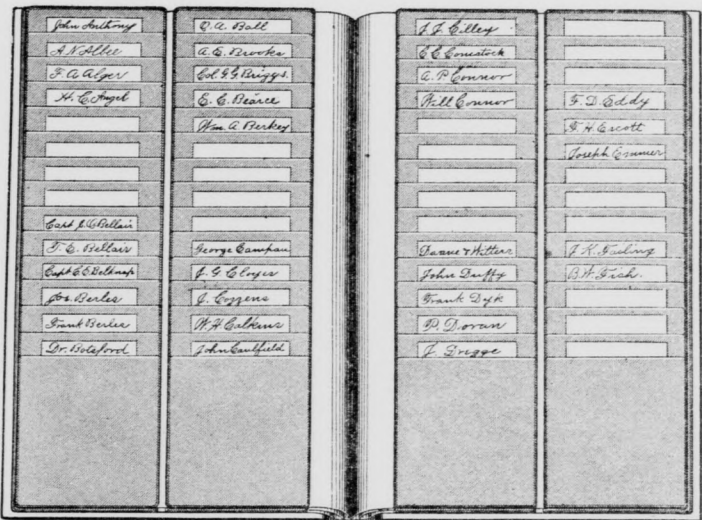 John Anthony
A. N. Albee
F. A. Alger
H. C. Angel
Capt J. C. Bellair
T. C. Bellair
Capt C. E. Belknap
Jos. Berles
Frank Berles
Dr. Botsford
O. A. Ball
A. E. Brooks
Col. G. G. Briggs.
E. E. Bearce
Wm. A. Berkey
George Campau
J. G. Cloyes
J. Cozzens
W. H. Calkins
John Caulfield
J. J. Cilley
C C Comstock
A. P. Connor
Will Connor
Doane & Witters
John Duffy
Frank Dyk
P. Doran
J. Dregge
F. D. Eddy
F. H. Escott
Joseph Emmer
J. K. Farling
B. W. Fish.